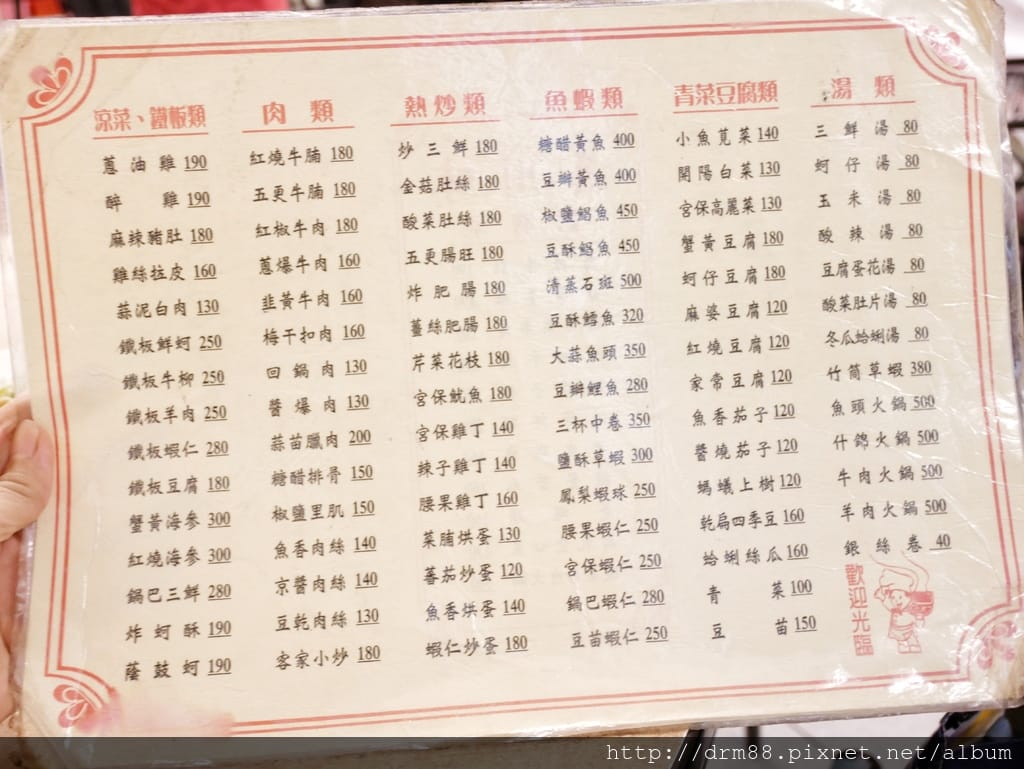 涼菜、鐵板類
蔥油雞 190
醉雞 190
麻辣豬肚 180
雞絲拉皮 160
蒜泥白肉 130
鐵板鮮蚵 250
鐵板牛柳 250
鐵板羊肉 250
鐵板蝦仁 280
鐵板豆腐 180
蟹黃海參 300
紅燒海參 300
鍋巴三鮮 280
炸蚵酥 190
蔭鼓蚵 190
肉類
紅燒牛腩 180
五更牛腩 180
紅椒牛肉 180
蔥爆牛肉 160
韭黃牛肉 160
梅干扣肉 160
回鍋肉 130
醬爆肉 130
蒜苗臘肉 200
糖醋排骨 150
椒鹽里肌 150
魚香肉絲 140
京醬肉絲 140
豆乾肉絲 130
客家小炒 180
熱炒類
炒三鮮 180
金菇肚絲 180
酸菜肚絲 180
五更腸旺 180
炸肥腸 180
薑絲肥腸 180
芹菜花枝 180
宮保魷魚 180
宮保雞丁 140
辣子雞丁 140
腰果雞丁 160
菜脯烘蛋 130
蕃茄炒蛋 120
魚香烘蛋 140
蝦仁炒蛋 180
魚蝦類
糖醋黃魚 400
豆瓣黃魚 400
椒鹽鯧魚 450
豆酥鯧魚 450
清蒸石斑 500
豆酥鱈魚 320
大蒜魚頭 350
豆瓣鯉魚 280
三杯中卷 350
鹽酥草蝦 300
鳳梨蝦球 250
腰果蝦仁 250
宮保蝦仁 250
鍋巴蝦仁 280
豆苗蝦仁 250
青菜豆腐類
小魚莧菜 140
開陽白菜 130
宮保高麗菜 130
蟹黃豆腐 180
蚵仔豆腐 180
麻婆豆腐 120
紅燒豆腐 120
家常豆腐 120
魚香茄子 120
醬燒茄子 120
螞蟻上樹 120
乾扁四季豆 160
蛤蜊絲瓜 160
青菜 100
豆苗 150
湯類
三鮮湯 80
蚵仔湯 80
玉米湯 80
酸辣湯 80
豆腐蛋花湯 80
酸菜肚片湯 80
冬瓜蛤蜊湯 80
竹筒草蝦 380
魚頭火鍋 500
什錦火鍋 500
牛肉火鍋 500
羊肉火鍋 500
銀絲卷 40
歡迎光臨
http://drm88.pixnet.net/album